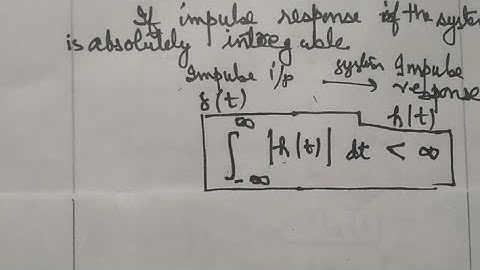 If impulse response of the system
is absolutely integrable
Impulse i/p system → Impulse
response
δ(t) h(t)
∫_{-∞}^{∞} |h(t)| dt < ∞